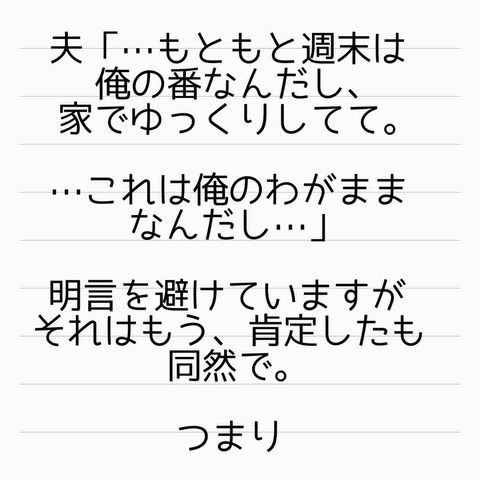 夫「…もともと週末は
俺の番なんだし、
家でゆっくりしてて。
…これは俺のわがまま
なんだし…」
明言を避けていますが
それはもう、肯定したも
同然で。
つまり